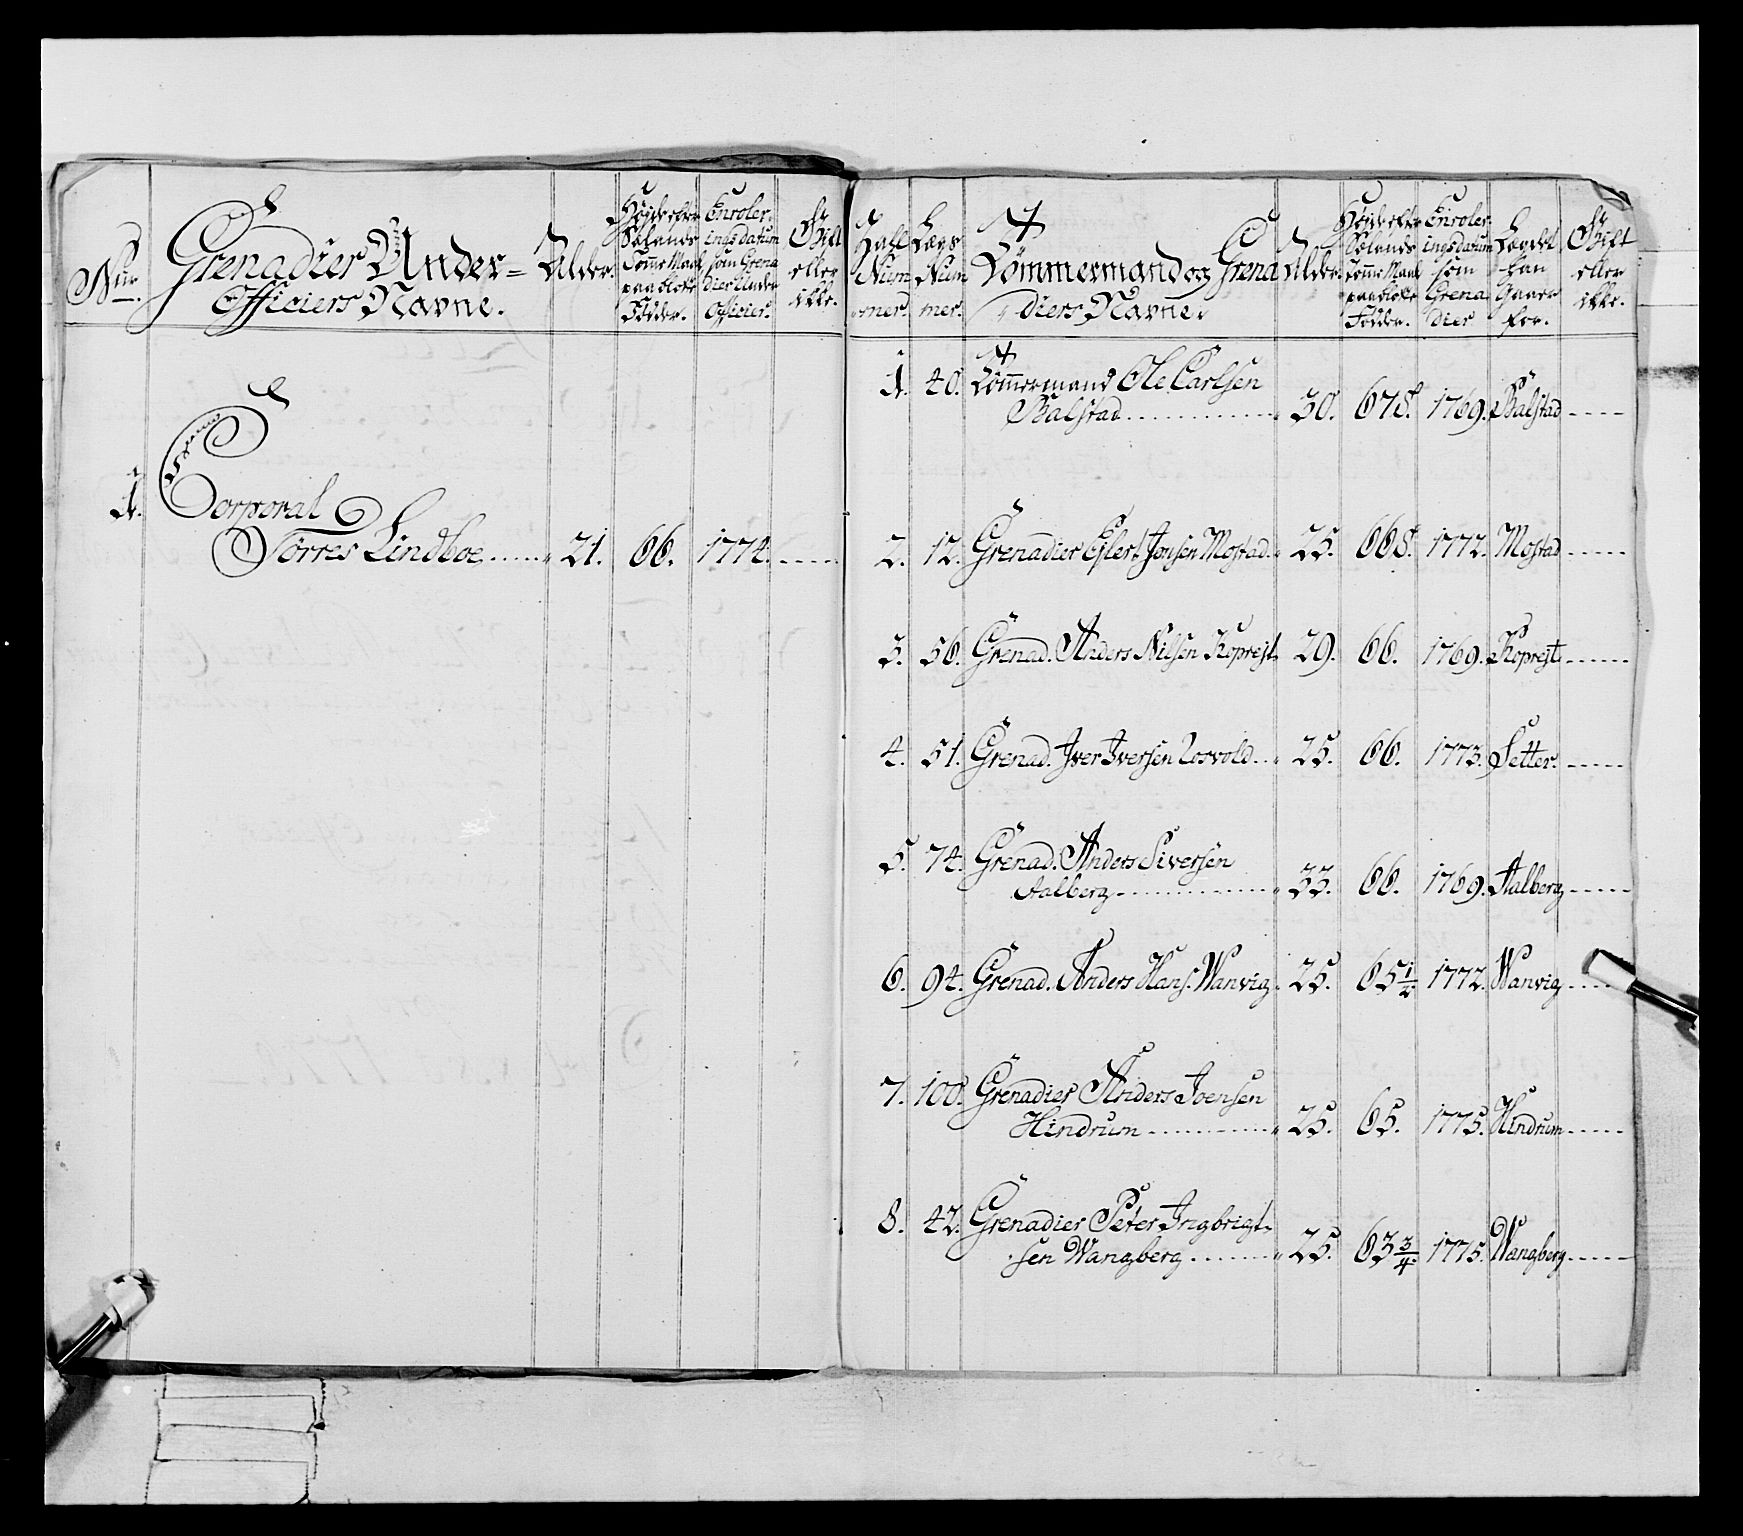 Nur.
Grenadier Under=
Officiers Navne.
Alder.
Højde efter
Sælands
Tomme Maal
paa blotte
Fødder.
Enroler-
ings datum
som Grena
dier Under
Officier.
Gift
eller
ikke.
1. Corporal
Torres Lindboe 21. 66. 1774.
Tall
Num
mer.
Lægs
Num
mer.
Tömmermand og Grena
diers Navne.
Alder.
Højde efter
Sælands
Tomme Maal
paa blotte
Fødder.
Enroler-
ings datum
som
Grena
dier
Lægdet
han
Gaaer
for.
Gift
eller
ikke.
1. 40. Tömmermand Ole Carlsen
Balstad 30. 67 1769. Balstad
2. 12. Grenadier Eylert Jonsen Mostad. 25. 66 1772. Mostad
3. 56. Grenad. Anders Nilsen Kopreit 29. 66. 1769. Kopreit
4. 51. Grenad. Iver Iversen Rosvold 25. 66. 1773. Setter.
5. 74. Grenad. Anders Siversen
Aalberg 33. 66. 1769. Aalberg
6. 94. Grenad. Anders Hans. Wanvig 25. 65 1/2 1772. Wanvig
7. 100. Grenadier Anders Joensen
Hindrum 25. 65. 1775. Hindrum
8. 42. Grenadier Peter Ingbrigt-
sen Wangberg 25. 63 3/4 1775. Wangberg